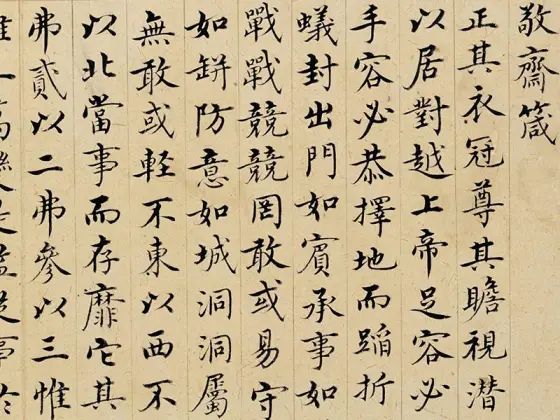 敬齋箴
正其衣冠尊其瞻視潛
以居對越上帝足容必
手容必恭擇地而蹈折
蟻封出門如賓承事如
戰戰兢兢罔敢或易守
如缾防意如城洞洞屬
無敢或輕不東以西不
以北當事而存靡它其
弗貳以二弗參以三惟